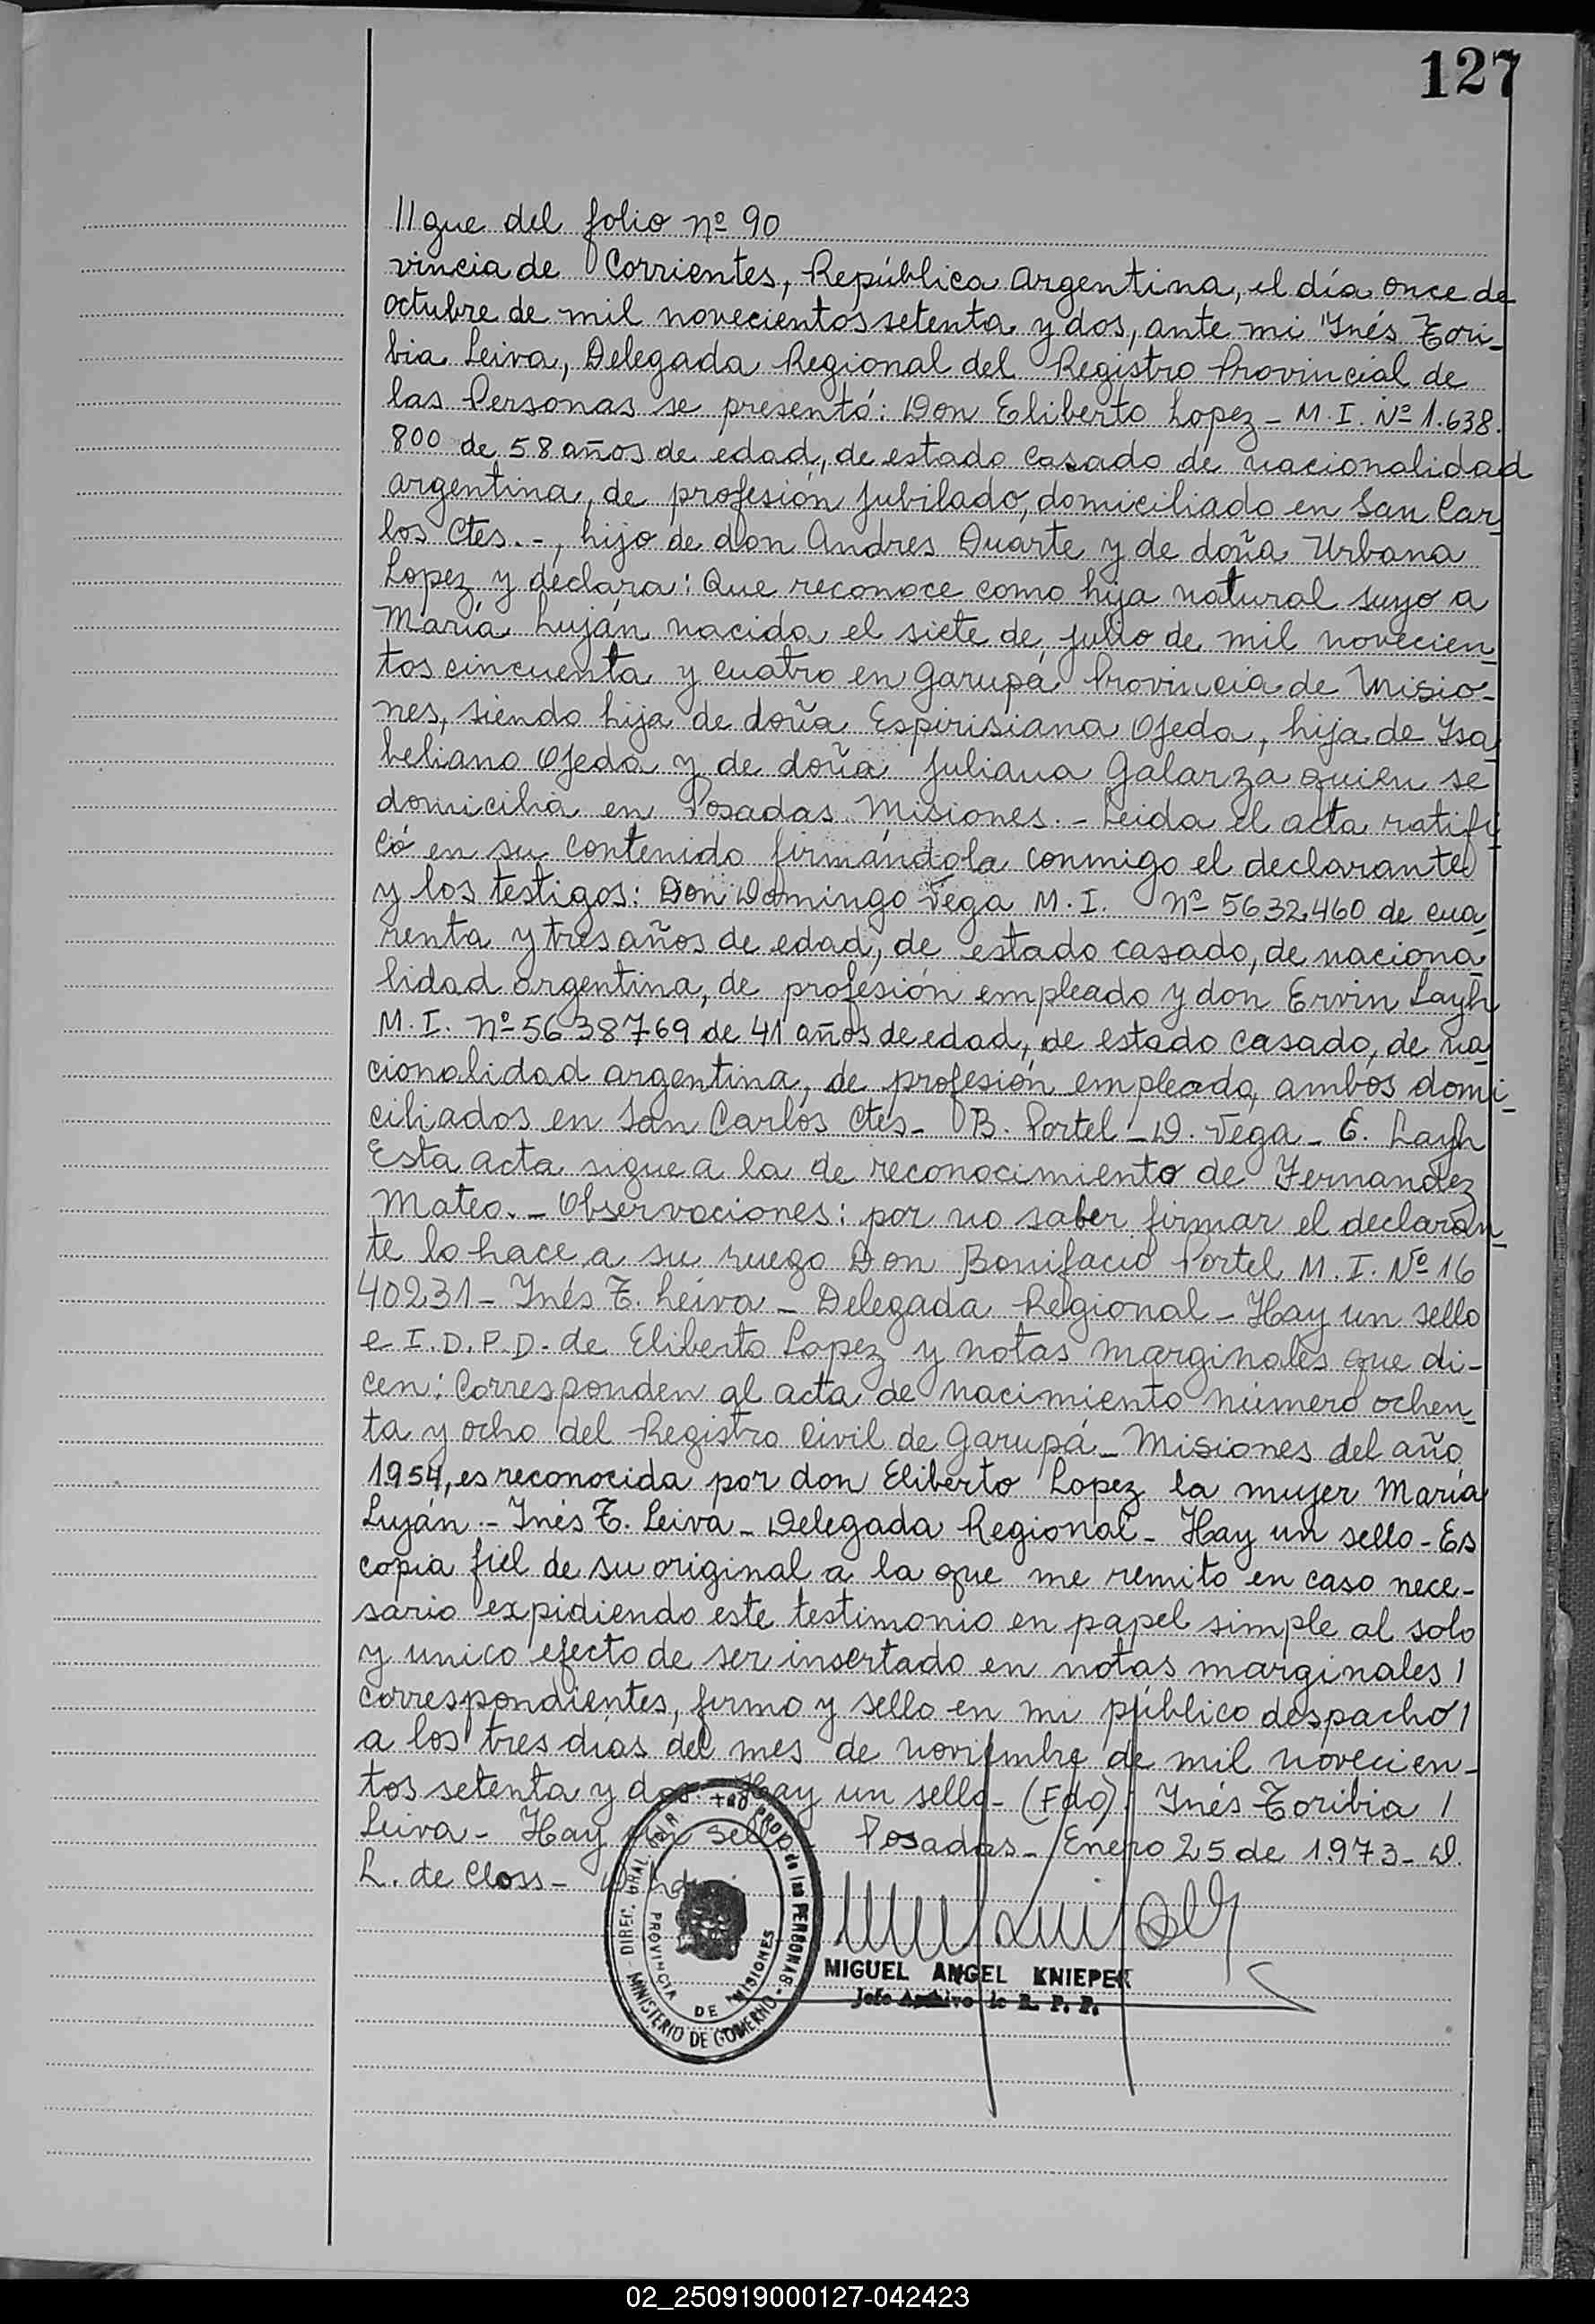 127
//gue del folio nº 90
vincia de Corrientes, República Argentina, el día once de
octubre de mil novecientos setenta y dos, ante mi Inés Tori-
bia Leiva, Delegada Regional del Registro Provincial de
las Personas se presentó: Don Eliberto Lopez - M.I. Nº 1.638.
800 de 58 años de edad, de estado casado de nacionalidad
argentina, de profesión jubilado, domiciliado en San Car-
los Ctes.-, hijo de don Andres Duarte y de doña Urbana
Lopez y declara: Que reconoce como hija natural suyo a
María Luján nacida el siete de julio de mil novecien-
tos cincuenta y cuatro en Garupá Provincia de Misio-
nes, siendo hija de doña Espirisiana Ojeda, hija de Isa-
beliano Ojeda y de doña Juliana Galarza quien se
domicilia en Posadas Misiones.- Leida el acta ratifi-
có en su contenido firmándola conmigo el declarante
y los testigos: Don Domingo Vega M.I. Nº 5632.460 de cua-
renta y tres años de edad, de estado casado, de naciona-
lidad argentina, de profesión empleado y don Ervin Layh
M.I. Nº 5638769 de 41 años de edad, de estado casado, de na-
cionalidad argentina, de profesión empleado, ambos domi-
ciliados en San Carlos Ctes- B. Portel - D. Vega - E. Layh
Esta acta sigue a la de reconocimiento de Fernandez
Mateo.- Observaciones: por no saber firmar el declaran-
te lo hace a su ruego Don Bonifacio Portel M.I. Nº 16
40231 - Inés T. Leiva - Delegada Regional - Hay un sello
e I.D.P.D. de Eliberto Lopez y notas marginales que di-
cen: Corresponden al acta de nacimiento número ochen-
ta y ocho del Registro Civil de Garupá - Misiones del año
1954, es reconocida por don Eliberto Lopez la mujer María
Luján - Inés T. Leiva - Delegada Regional - Hay un sello - Es
copia fiel de su original a la que me remito en caso nece-
sario expidiendo este testimonio en papel simple al solo
y unico efecto de ser insertado en notas marginales /
correspondientes, firmo y sello en mi público despacho /
a los tres días del mes de noviembre de mil novecien-
tos setenta y dos. Hay un sello - (Fdo): Inés Toribia /
Leiva - Hay un sello Posadas - Enero 25 de 1973 - D.
L. de Closs -
DIREC. GRAL. PROV. de las PERSONAS
PROVINCIA DE MISIONES
MINISTERIO DE GOBIERNO
MIGUEL ANGEL KNIEPER
Jefe Archivo de R. P. P.
02_250919000127-042423